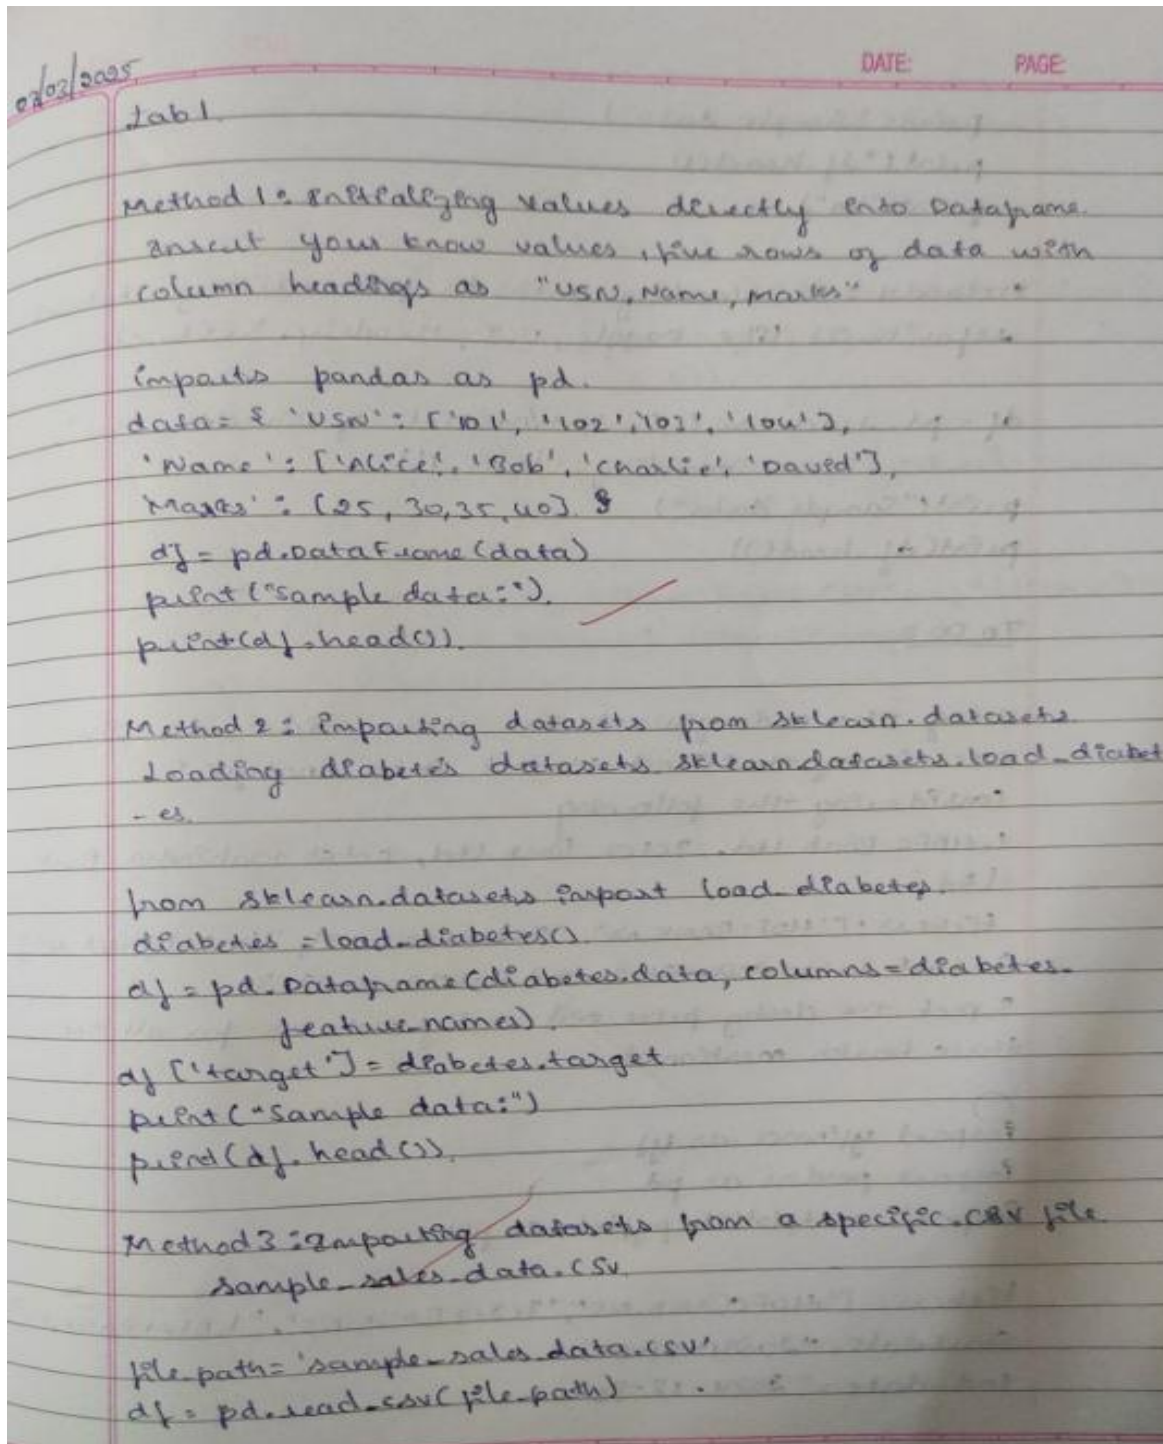 DATE: PAGE:
03/03/2025
Lab 1.
Method 1: Initializing values directly into Dataframe.
Insert your know values, five rows of data with
column headings as "USN, Name, Marks"
imports pandas as pd.
data = { 'USN': ['101', '102', '103', '104'],
'Name': ['Alice', 'Bob', 'Charlie', 'David'],
'Marks': [25, 30, 35, 40] }
df = pd.DataFrame(data)
print("Sample data:").
print(df.head()).
Method 2: importing datasets from sklearn.datasets
Loading diabetes datasets sklearn.datasets.load_diabet
-es.
from sklearn.datasets import load_diabetes.
diabetes = load_diabetes()
df = pd.Dataframe(diabetes.data, columns = diabetes.
feature_names).
df ['target'] = diabetes.target
print("Sample data:")
print(df.head()).
Method 3: Importing datasets from a specific .CSV file
sample_sales_data.csv
file_path = 'sample_sales_data.csv'
df = pd.read_csv(file_path)